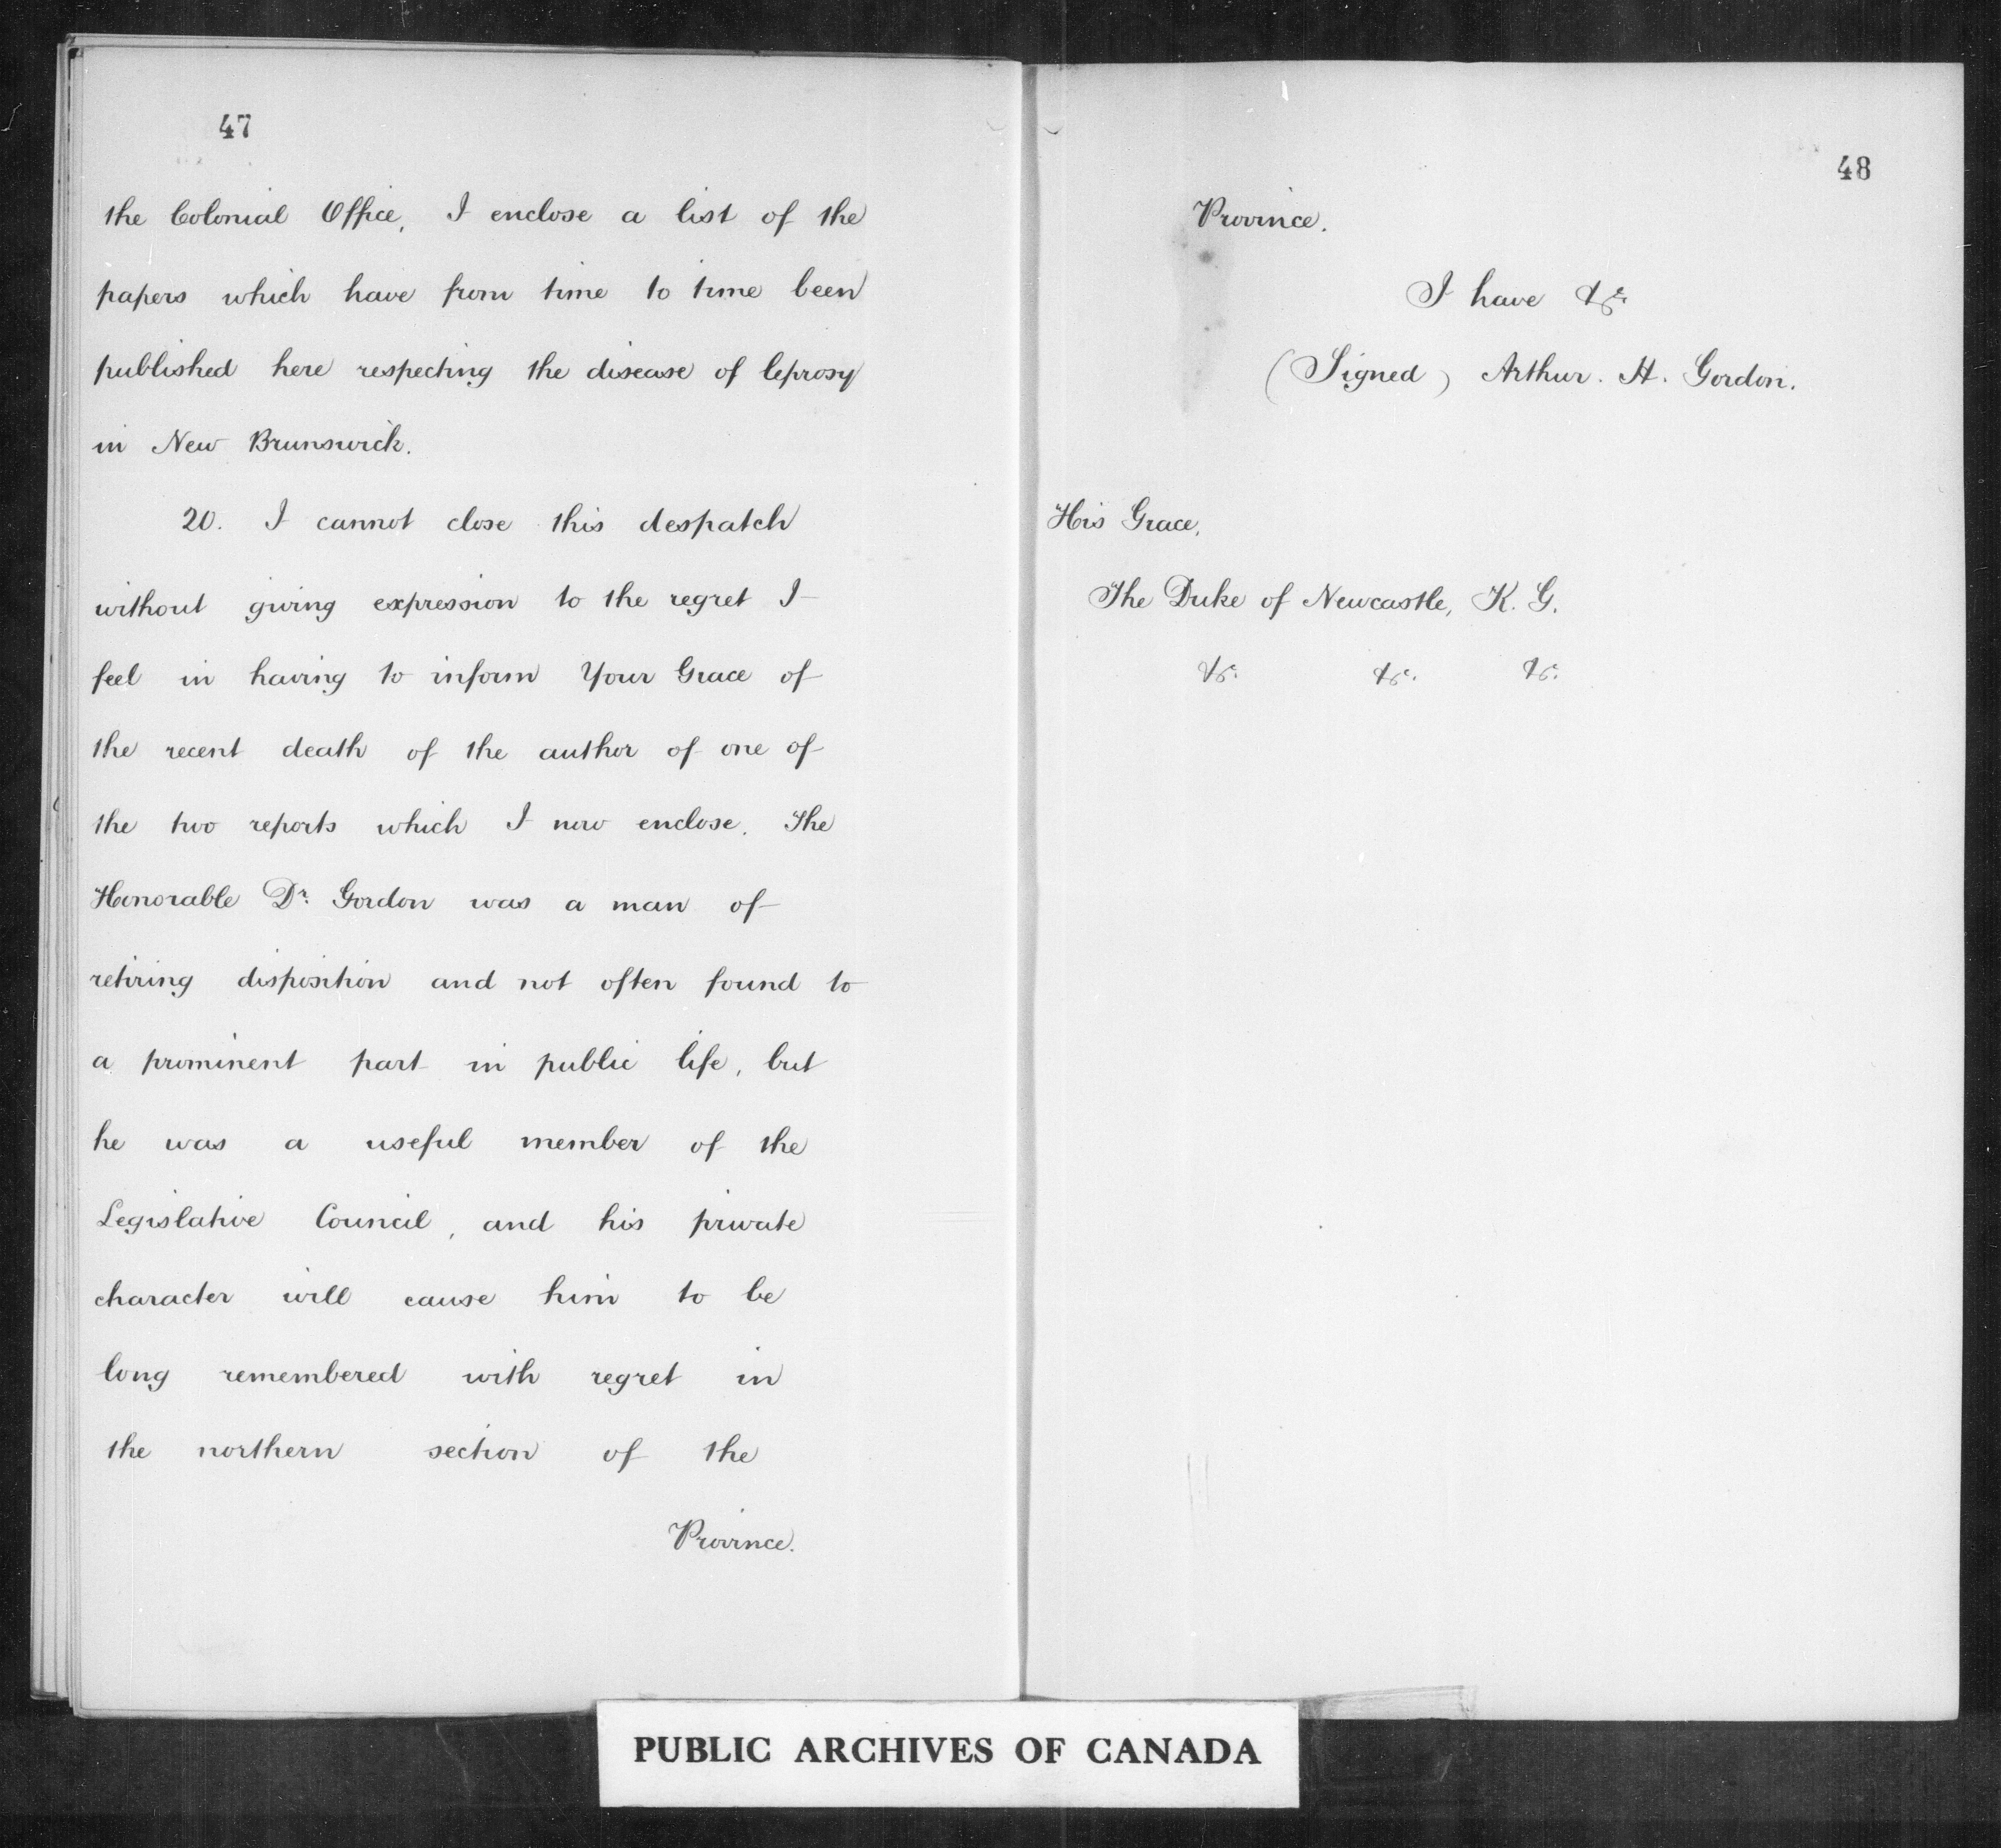 47
the Colonial Office, I enclose a list of the
papers which have from time to time been
published here respecting the disease of leprosy
in New Brunswick.
20. I cannot close this despatch
without giving expression to the regret I
feel in having to inform Your Grace of
the recent death of the author of one of
the two reports which I now enclose. The
Honorable Dr. Gordon was a man of
retiring disposition and not often found to
a prominent part in public life, but
he was a useful member of the
Legislative Council, and his private
character will cause him to be
long remembered with regret in
the northern section of the
Province.
48
Province.
I have &c.
(Signed) Arthur. H. Gordon.
His Grace,
The Duke of Newcastle, K. G.
&c. &c. &c.
PUBLIC ARCHIVES OF CANADA